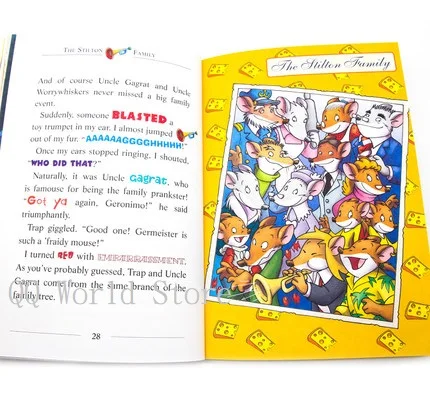 THE STILTON FAMILY
And of course Uncle Gagrat and Uncle
Worrywhiskers never missed a big family
event.
Suddenly, someone BLASTED a
toy trumpet in my ear. I almost jumped
out of my fur. "AAAAAAGGGGHHHHH!"
Once my ears stopped ringing, I shouted,
"WHO DID THAT?"
Naturally, it was Uncle Gagrat, who
is famouse for being the family prankster!
"Got ya again, Geronimo!" he said
triumphantly.
Trap giggled. "Good one! Germeister is
such a 'fraidy mouse!"
I turned RED with EMBARRASSMENT.
As you've probably guessed, Trap and Uncle
Gagrat come from the same branch of the
family tree.
28
The Stilton Family
QQ World Store